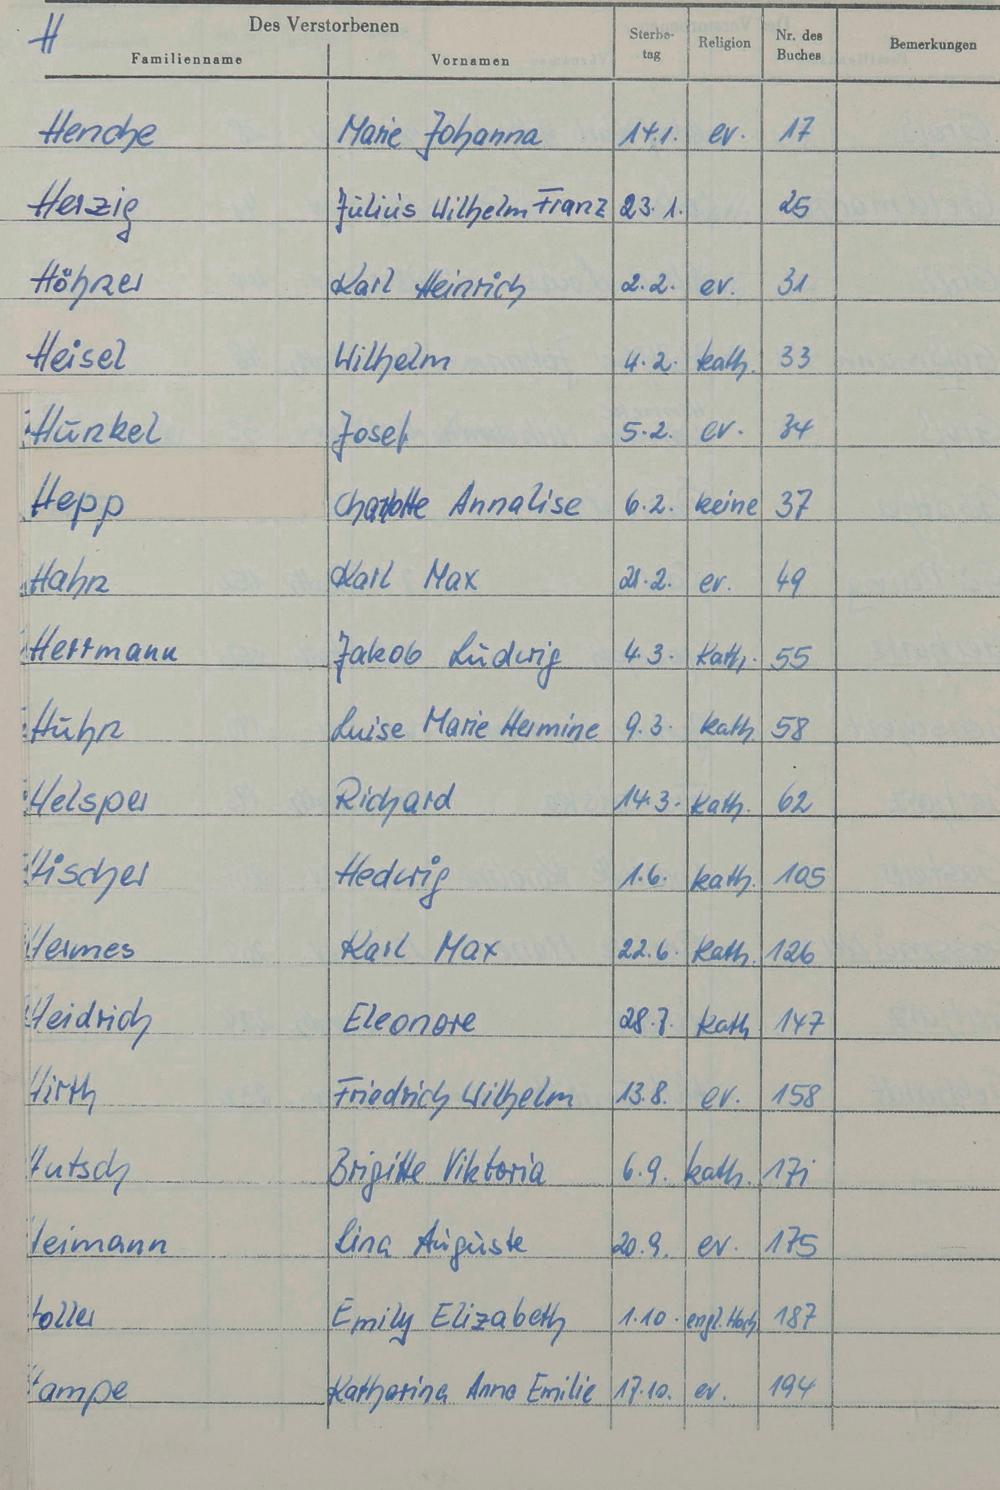 H
Des Verstorbenen
Familienname Vornamen Sterbe-tag Religion Nr. des Buches Bemerkungen
Henche Marie Johanna 14.1. ev. 17
Herzig Julius Wilhelm Franz 23.1. 25
Höhner Karl Heinrich 2.2. ev. 31
Heisel Wilhelm 4.2. kath. 33
Hunkel Josef 5.2. ev. 34
Hepp Charlotte Annalise 6.2. keine 37
Hahn Karl Max 21.2. ev. 49
Herrmann Jakob Ludwig 4.3. Kath. 55
Huhn Luise Marie Hermine 9.3. kath 58
Helsper Richard 14.3. kath. 62
Hischer Hedwig 1.6. kath. 105
Hermes Karl Max 22.6. Kath. 126
Heidrich Eleonore 28.7. kath 147
Hirth Friedrich Wilhelm 13.8. ev. 158
Hutsch Brigitte Viktoria 6.9. kath. 171
Heimann Lina Auguste 20.9. ev. 175
Holler Emily Elizabeth 1.10. engl. Hoch 187
Hampe Katharina Anna Emilie 17.10. ev. 194